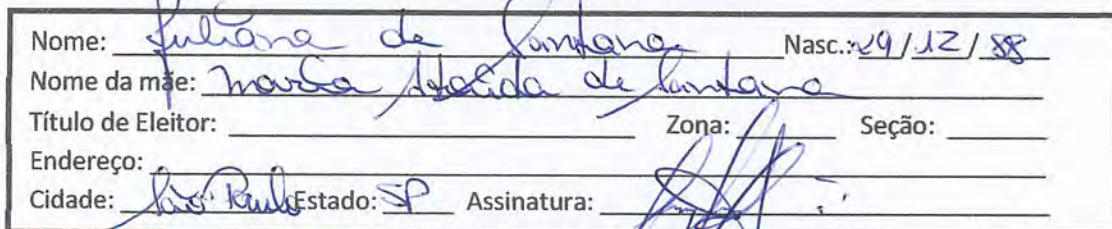 Nome: Juliana de Santana Nasc.: 29/12/88
Nome da mãe: Maria de Santana
Título de Eleitor: Zona: Seção:
Endereço:
Cidade: São Paulo Estado: SP Assinatura: